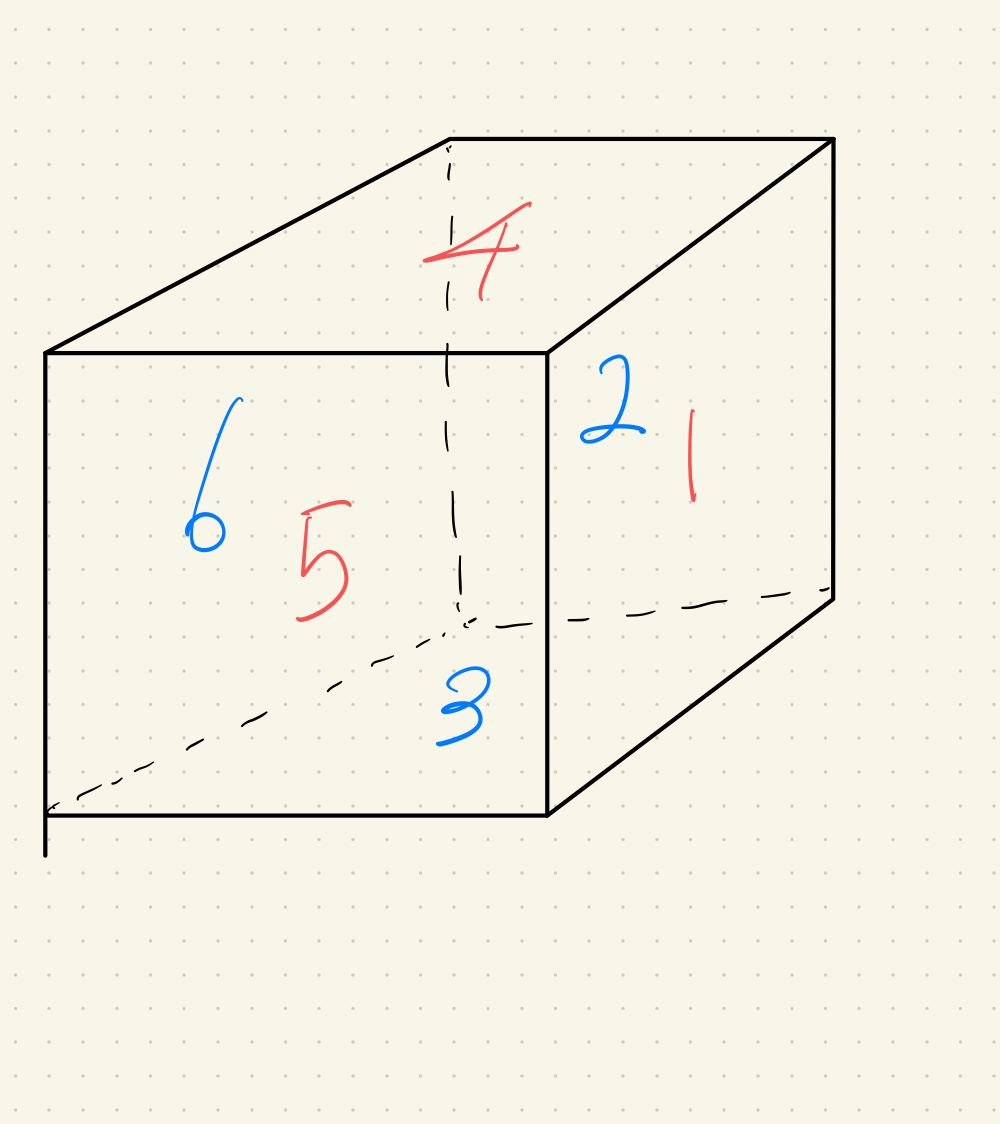 4
2
1
6
5
3